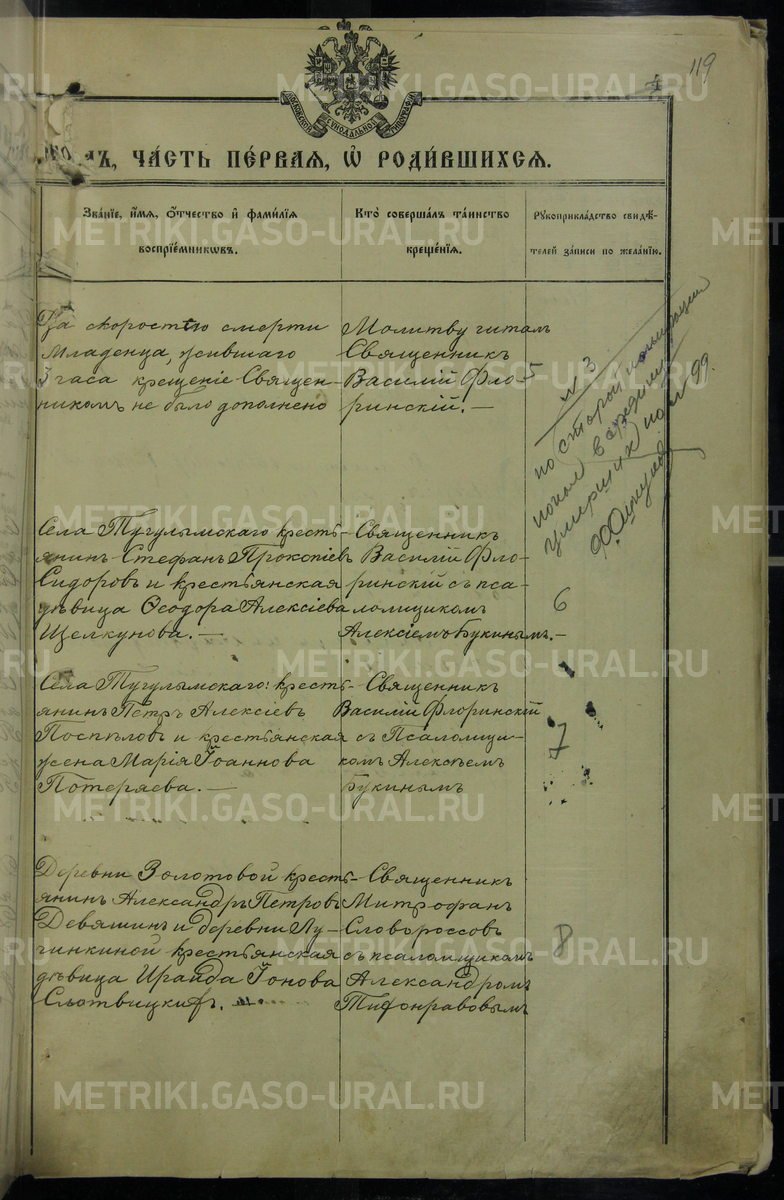 119
МОСКОВСКОЙ СѴНОДАЛЬНОЙ ТИПОГРАФІИ
ЧА́СТЬ ПЕ́РВАЯ, Ѡ РОДИ́ВШИХСЯ.
Зва́нїе, и́мѧ, ѻ҆́тчество и҆ фами́лїѧ
воспрїе́мникѡвъ.
Кто̀ соверша́лъ та́инство
креще́нїѧ.
Рꙋкоприкла́дство свидѣ́-
телей за́писи по жела́нїю.
За скоростью смерти
младенца, жившаго
3 часа крещеніе Священ-
никомъ не было дополнено
Молитву читалъ
Священникъ
Василій Фло-
ринскій.—
5
N 3
по второй
умершихъ по N 99.
Села Тугулымскаго кресть-
янинъ Стефанъ Прокопіевъ
Сидоровъ и крестьянская
дѣвица Ѳеодора Алексіева
Щелкунова.—
Священникъ
Василій Фло-
ринскій съ пса-
ломщикомъ
Алексіемъ Букинымъ.—
6
Села Тугулымскаго: кресть-
янинъ Петръ Алексіевъ
Поспѣловъ и крестьянская
жена Марія Іоаннова
Потеряева.—
Священникъ
Василій Флоринскій
съ Псаломщи-
комъ Алексѣемъ
Букинымъ
7
Деревни Золотовой кресть-
янинъ Александръ Петровъ
Девяшинъ и деревни Лу-
чинкиной крестьянская
дѣвица Ираида Іонова
Священникъ
Митрофанъ
Словороссовъ
съ псаломщикомъ
Александромъ
Тифонравовымъ
8
METRIKI.GASO-URAL.RU